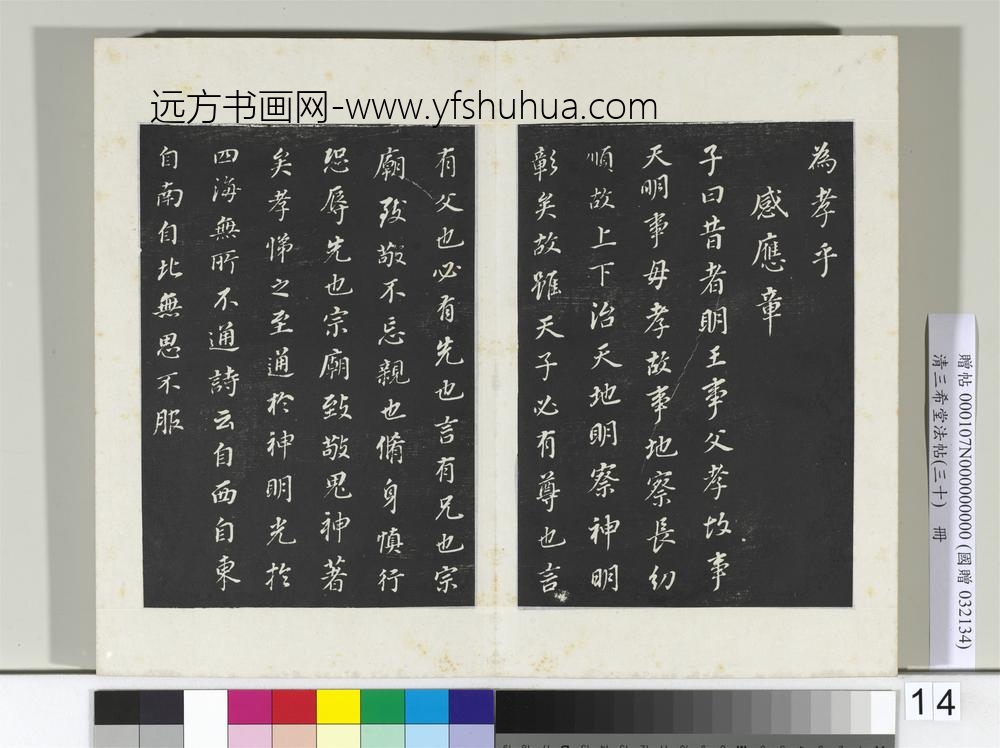 远方书画网-www.yfshuhua.com
為孝乎
感應章
子曰昔者明王事父孝故事
天明事母孝故事地察長幼
順故上下治天地明察神明
彰矣故雖天子必有尊也言
有父也必有先也言有兄也宗
廟致敬不忘親也脩身慎行
恐辱先也宗廟致敬鬼神著
矣孝悌之至通於神明光於
四海無所不通詩云自西自東
自南自北無思不服
贈帖 000107N000000000 (國贈 032134)
清三希堂法帖(三十) 冊
14